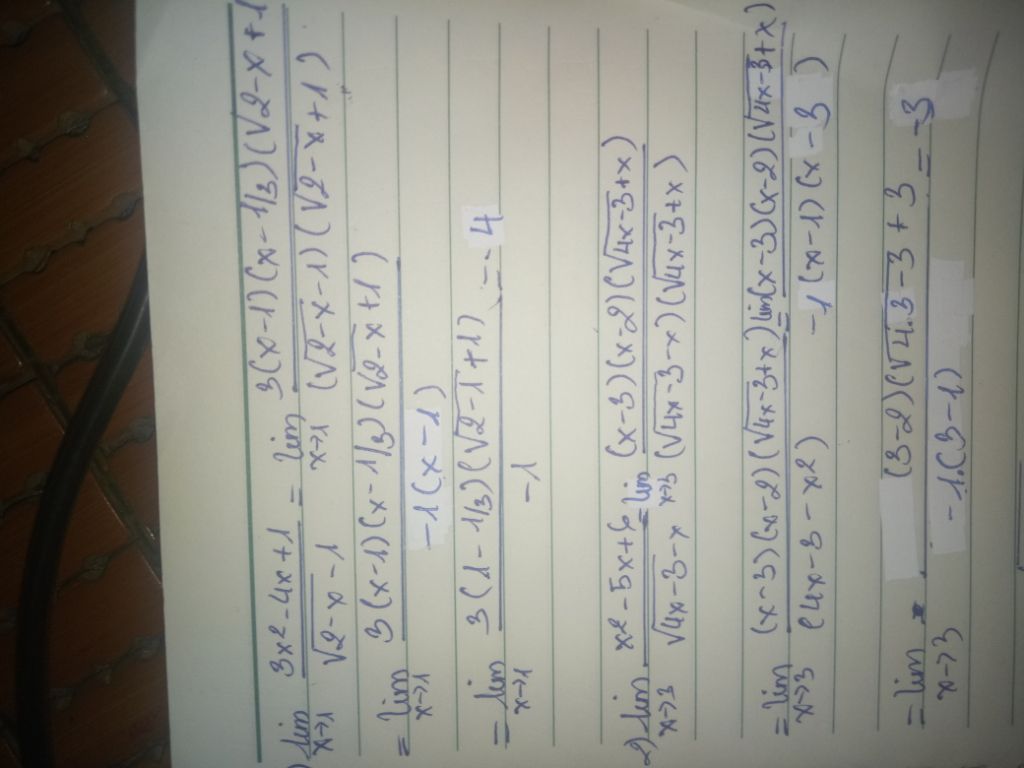 ) lim x→1 (3x² - 4x + 1)/(√2-x - 1) = lim x→1 3(x-1)(x-1/3)(√2-x + 1/(√2-x - 1)(√2-x + 1)
= lim x→1 3(x-1)(x-1/3)(√2-x + 1)/-1(x-1)
= lim x→1 3(1-1/3)(√2-1 + 1)/-1 = -4
2) lim x→3 (x² - 5x + 6)/(√4x-3 - x) = lim x→3 (x-3)(x-2)(√4x-3 + x)/(√4x-3 - x)(√4x-3 + x)
= lim x→3 (x-3)(x-2)(√4x-3 + x)/(4x-3-x²) = lim (x-3)(x-2)(√4x-3 + x)/-1(x-1)(x-3)
= lim x→3 (3-2)(√4.3-3 + 3/-1.(3-1) = -3